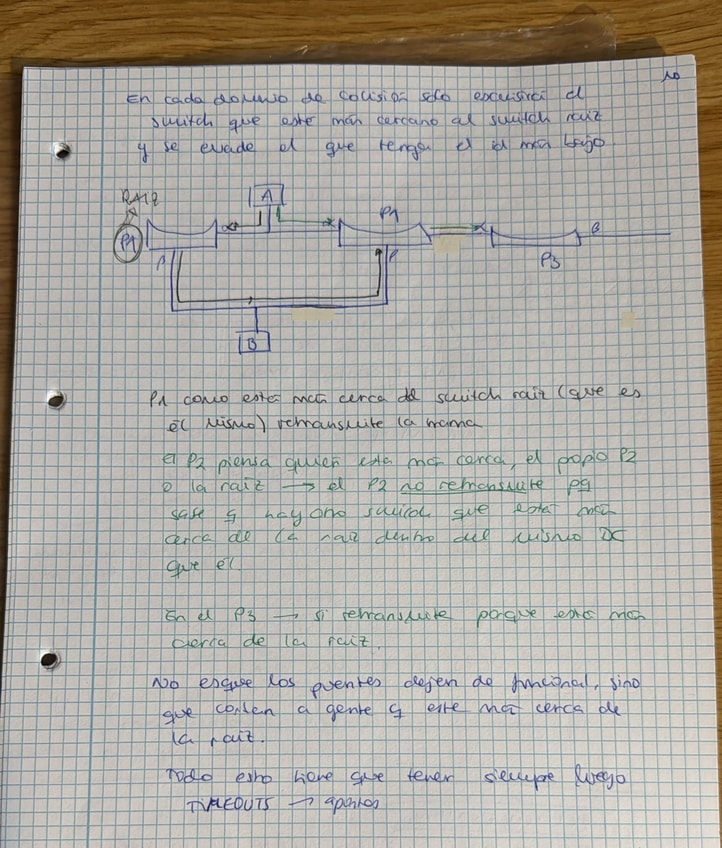 10
En cada dominio de colisión solo escuisirá el
switch que esté más cercano al switch raiz
y se evade el que tenga el id más bajo.
RAIZ
A
P1
P1
B
P3
B
P1 como está más cerca del switch raiz (que es
él mismo) retransmite la trama
el P2 piensa quien esta más cerca, el propio P2
o la raiz → el P2 no retransmite pq
sabe q hay otro switch que está más
cerca de la raiz dentro del mismo DC
que él.
En el P3 → si retransmite porque está más
cerca de la raiz.
No esque los puentes dejen de funcional, sino
que a gente q este más cerca de
la raiz.
Todo esto tiene que tener siempre luego
TIMEOUTS → apuntes